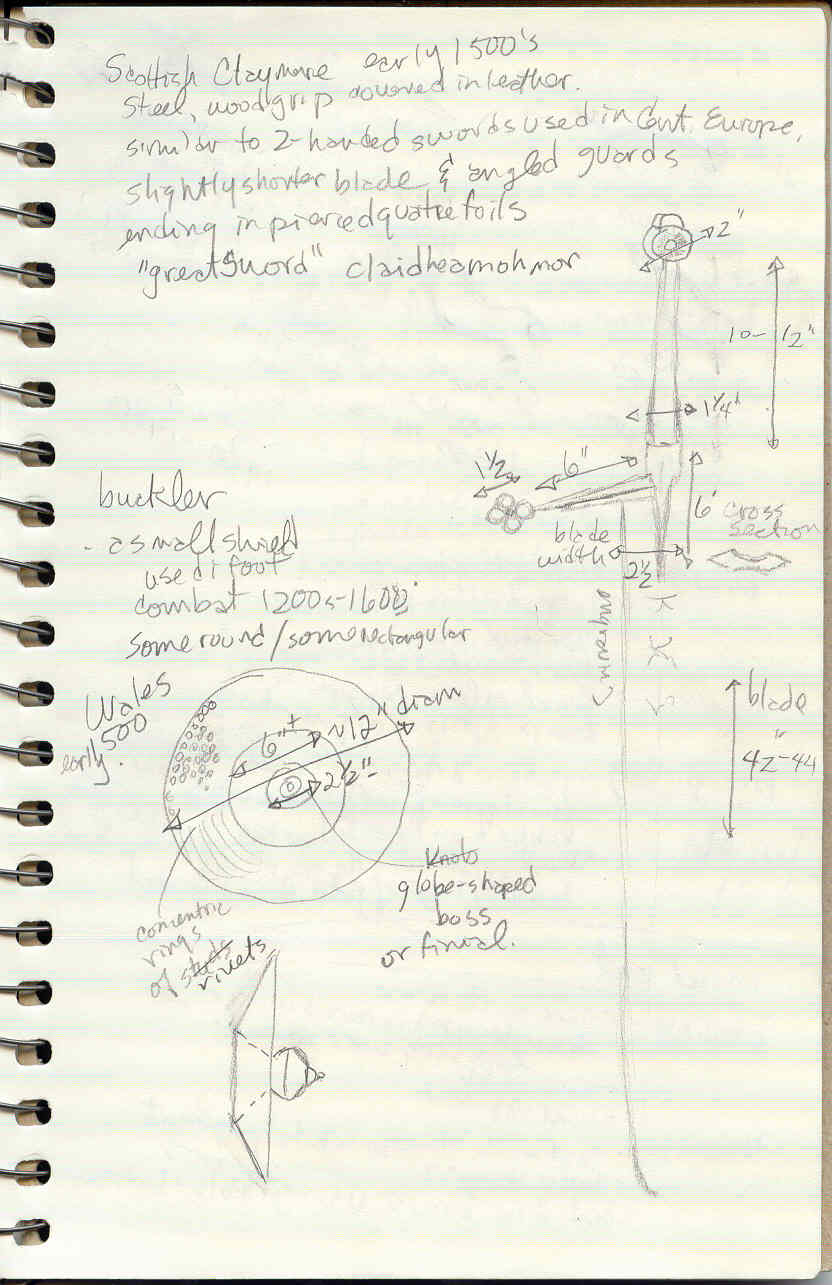 Scottish Claymore early 1500's
Steel, wood grip covered in leather.
similar to 2-handed swords used in Cent. Europe,
slightly shorter blade & angled guards
ending in pierced quatrefoils
"great sword" claidheamohmor
2"
10-12"
1 1/4"
1 1/2
6"
6"
cross
section
blade
width
2 1/2
blade
42-44"
buckler
- a small shield
used i foot
combat 1200s-1600
some round/some rectangular
Wales
early 1500
6"±
~12" diam
2 1/2"
knob
globe-shaped
boss
or finial.
concentric
rings
of studs
rivets